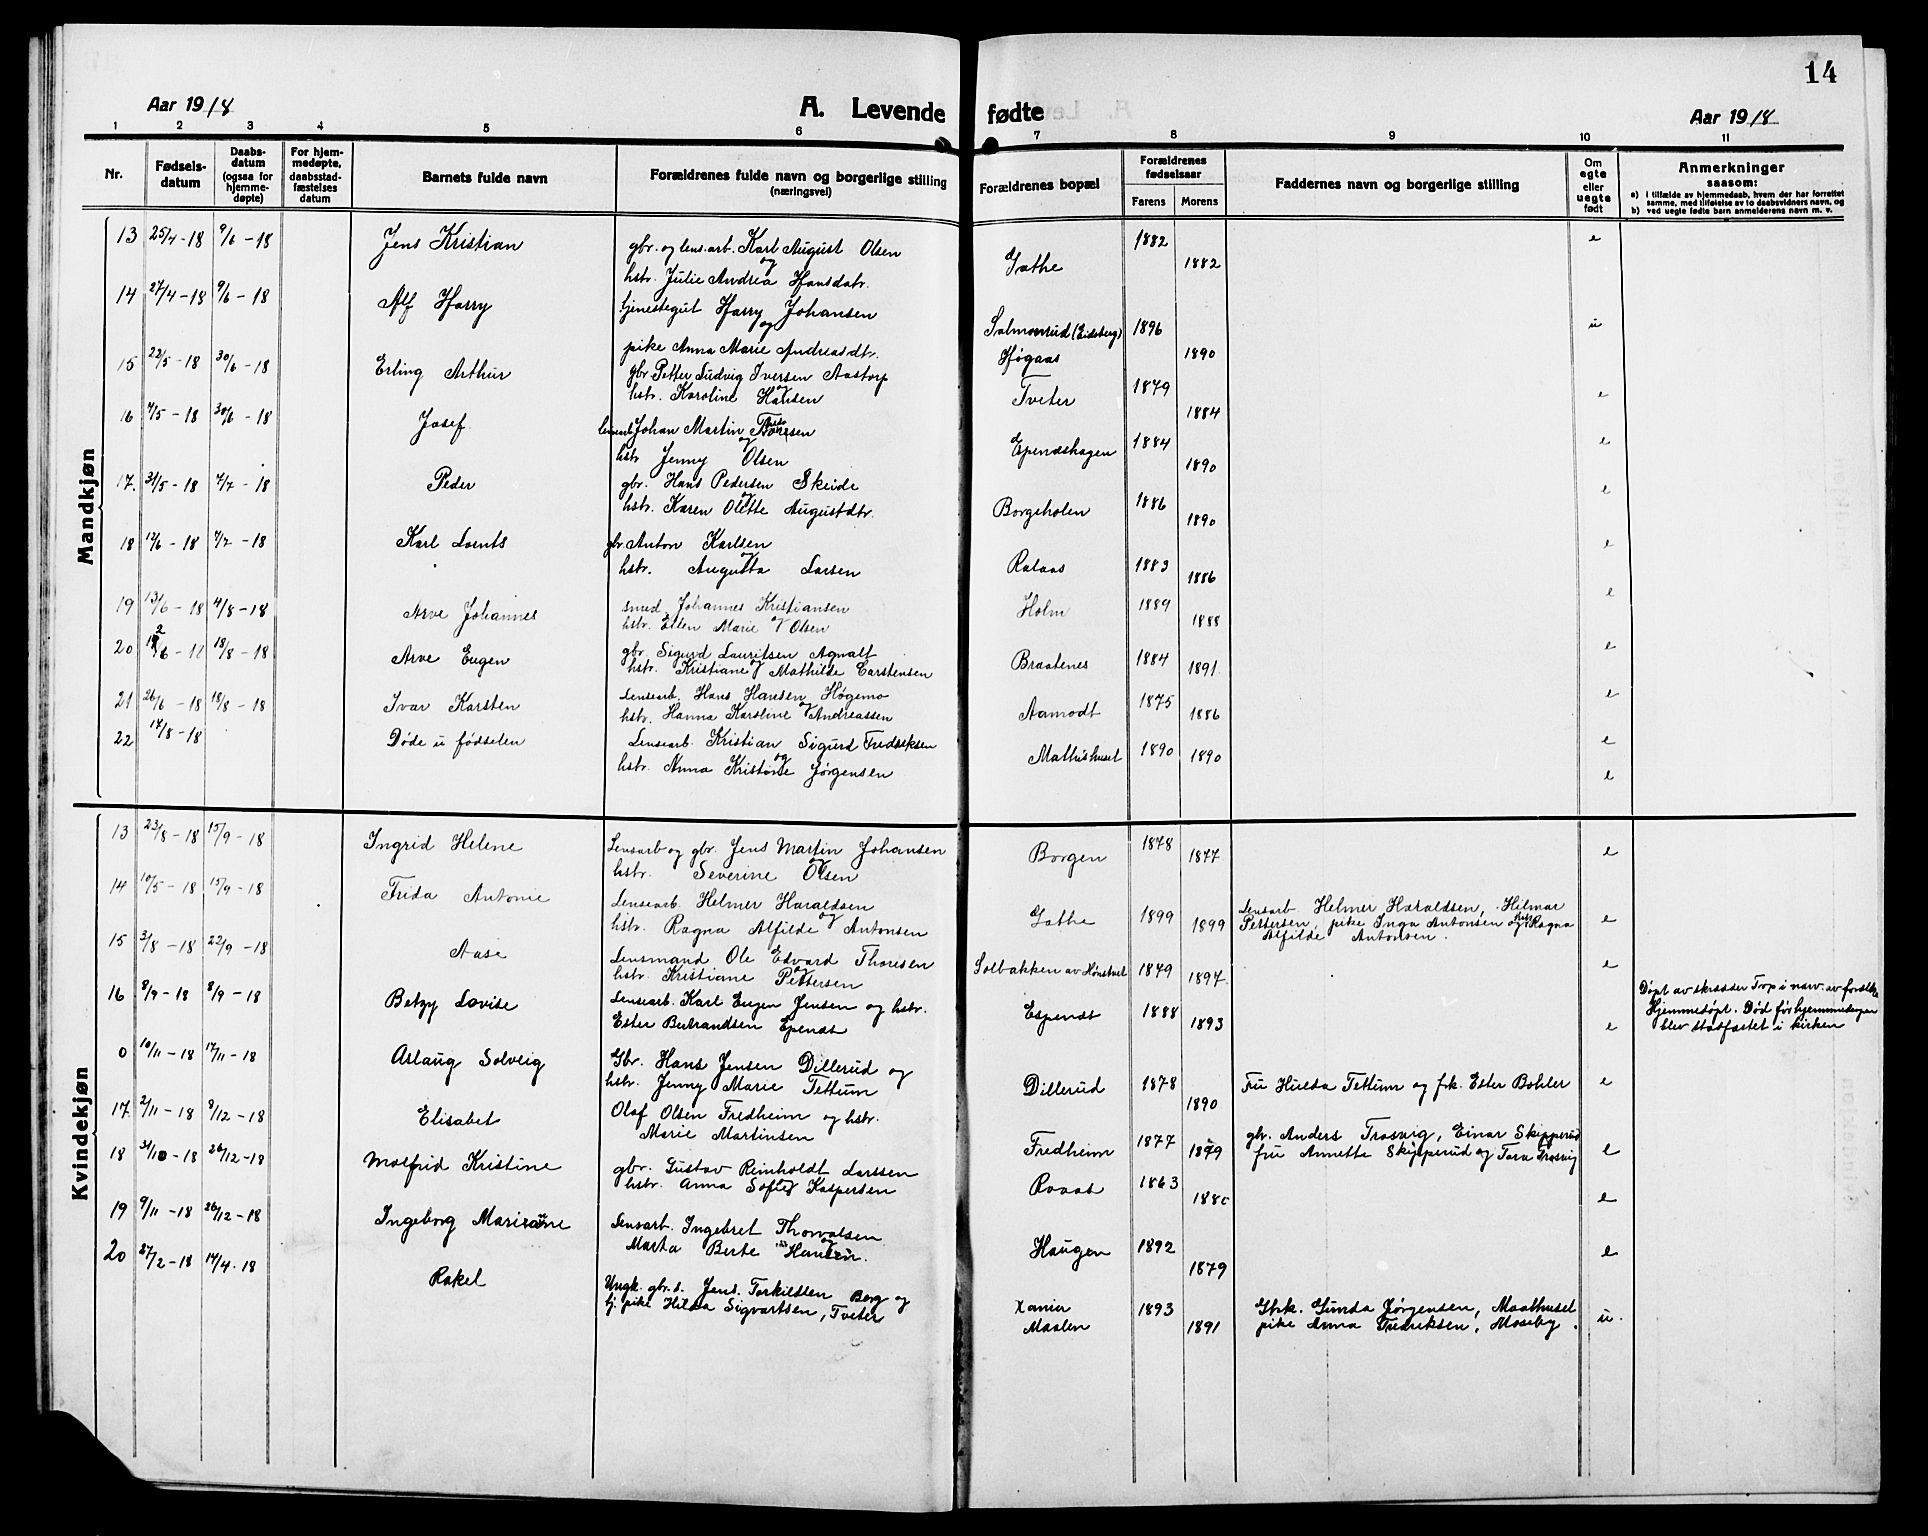 14
Aar 1918
A. Levende fødte
Aar 1918
1 2 3 4 5 6 7 8 9 10 11
Nr.
Fødsels-
datum
Daabs-
datum
(ogsaa for
hjemme-
døpte)
For hjem-
medøpte,
daabsstad-
fæstelses
datum
Barnets fulde navn
Forældrenes fulde navn og borgerlige stilling
(næringsvei)
Forældrenes bopæl
Forældrenes
fødselsaar
Farens Morens
Faddernes navn og borgerlige stilling
Om
egte
eller
uegte
født
Anmerkninger
saasom:
a) i tilfælde av hjemmedaab, hvem der har forrettet
samme, med tilføielse av to daabsvidners navn, og
b) ved uegte fødte barn anmelderens navn m. v.
Mandkjøn
13 25/4-18 9/6-18 Jens Kristian gbr. og lens.arb. Karl August Olsen 1882 e
og Gathe 1882
hstr. Julie Andrea Hansdatr.
14 27/4-18 9/6-18 Alf Harry tjenestegut Harry Johansen
og Salmonrud (Eidsberg) 1896 u
pike Anna Marie Andreasdtr. Høgaas 1890
15 22/5-18 30/6-18 Erling Arthur gbr Petter Ludvig Iversen Aastorp
hstr. Karoline Hansen Tveter 1879 1884 e
16 7/5-18 30/6-18 Josef lensarb Johan Martin Thoresen
og Ependshagen 1884 e
hstr Jenny Olsen 1890
17. 31/5-18 7/7-18 Peder gbr. Hans Pedersen Skeide
hstr. Karen Olette Augustdtr. Borgeholen 1886 1890 e
18 12/6-18 7/7-18 Karl Lornts gbr. Anton Karlsen
og
hstr. Augusta Larsen Ralaas 1883 1886 e
19 13/6-18 4/8-18 Arve Johannes smed Johannes Kristiansen
hstr. Ellen Marie Olsen Holm 1889 1888 e
20 12/6-18 18/8-18 Arve Eugen gbr Sigurd Lauritsen Agnalt
hstr. Kristiane Mathilde Carstensen Braatenes 1884 1891 e
21 26/6-18 18/8-18 Ivar Karsten Lensearb. Hans Hansen Høgemo
hstr. Hanna Karoline Andreassen Aamodt 1875 1886 e
22 14/8-18 Døde u fødselen Lensearb. Kristian Sigurd Fredriksen
og Mathishuset 1890 1890 e
hstr. Anna Kristine Jørgensen e
Kvindekjøn
13 23/8-18 15/9-18 Ingrid Helene Lensarb og gbr. Jens Martin Johansen
hstr. Severine Olsen Borgen 1878 1877 e
14 10/5-18 15/9-18 Frida Antonie Lensearb. Helmer Haraldsen
og Gathe 1899 1899 Lensarb Helmer Haraldsen, Hilmar
Pettersen, pike Inga Antonsen og hstr Ragna e
hstr. Ragna Alfilde Antonsen Alfilde Antonsen.
15 3/8-18 22/9-18 Aase Lensmand Ole Edvard Thoresen
hstr. Kristiane Pettersen Solbakken av 1879 1897 e
16 8/9-18 8/9-18 Betzy Lovise Lensearb. Karl Eugen Jensen og hstr.
Ester Bertrandsen Ependt Espendt 1888 1893 e
Døpt av skrædder Trop i nærv. av foreldre
Hjemmedøpt. Død før hjemmedaapen
blev stadfæstet i kirken
0 10/11-18 17/11-18 Aslaug Solveig Gbr. Hans Jensen Dillerud og
hstr. Jenny Marie Tettum Dillerud 1878 1890 Fru Hulda Tettum og frk. Ester Bohler e
17. 2/11-18 8/12-18 Elisabet Olaf Olsen Fredheim og hstr.
Marie Martinsen Fredheim 1877 1879 gbr. Anders Trosvig, Einar Skipperud
fru Annette Skipperud og Tora Trosvig e
18 31/10-18 26/12-18 Molfrid Kristine gbr. Gustav Reinholdt Larssen
hstr. Anna Sofie Kaspersen Rovas 1863 1880 e
19 9/11-18 26/12-18 Ingeborg Marianne Lensarb. Ingebret Thorvalsen
Marta Berte Hansen. Haugen 1892 1879 e
20 27/2-18 14/4-18 Rakel Ungk. gbr.s. Jens Torkildsen Borg og
tj. pike Hilda Sigvartsen, Tveter Maalen 1893 1891 Gbrk. Gunda Jørgensen, Maathuset
pike Anna Fredriksen, Moseby. u.